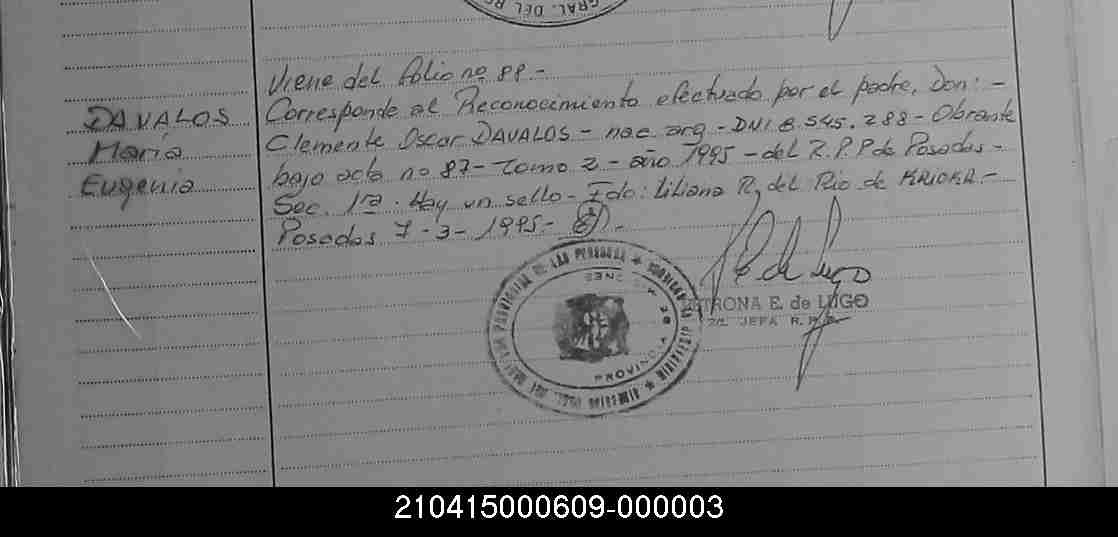 GRAL. DEL
Viene del folio nº 88.-
DAVALOS
María
Eugenia
Corresponde al Reconocimiento efectuado por el padre, Don: -
Clemente Oscar DAVALOS - nac. arg - DNI 8.545.288 - Obrante
bajo acta nº 87 - Tomo 2 - año 1995 - del R.P.P de Posadas -
Sec. 1ra. Hay un sello - Fdo: Liliana R. del Rio de
Posadas 7-3-1995-
PROVINCIAL DE LAS PERSONAS
PROVINCIA
MISIONES
P. de Lugo
PETRONA E. de LUGO
JEFA R.P.P.
210415000609-000003